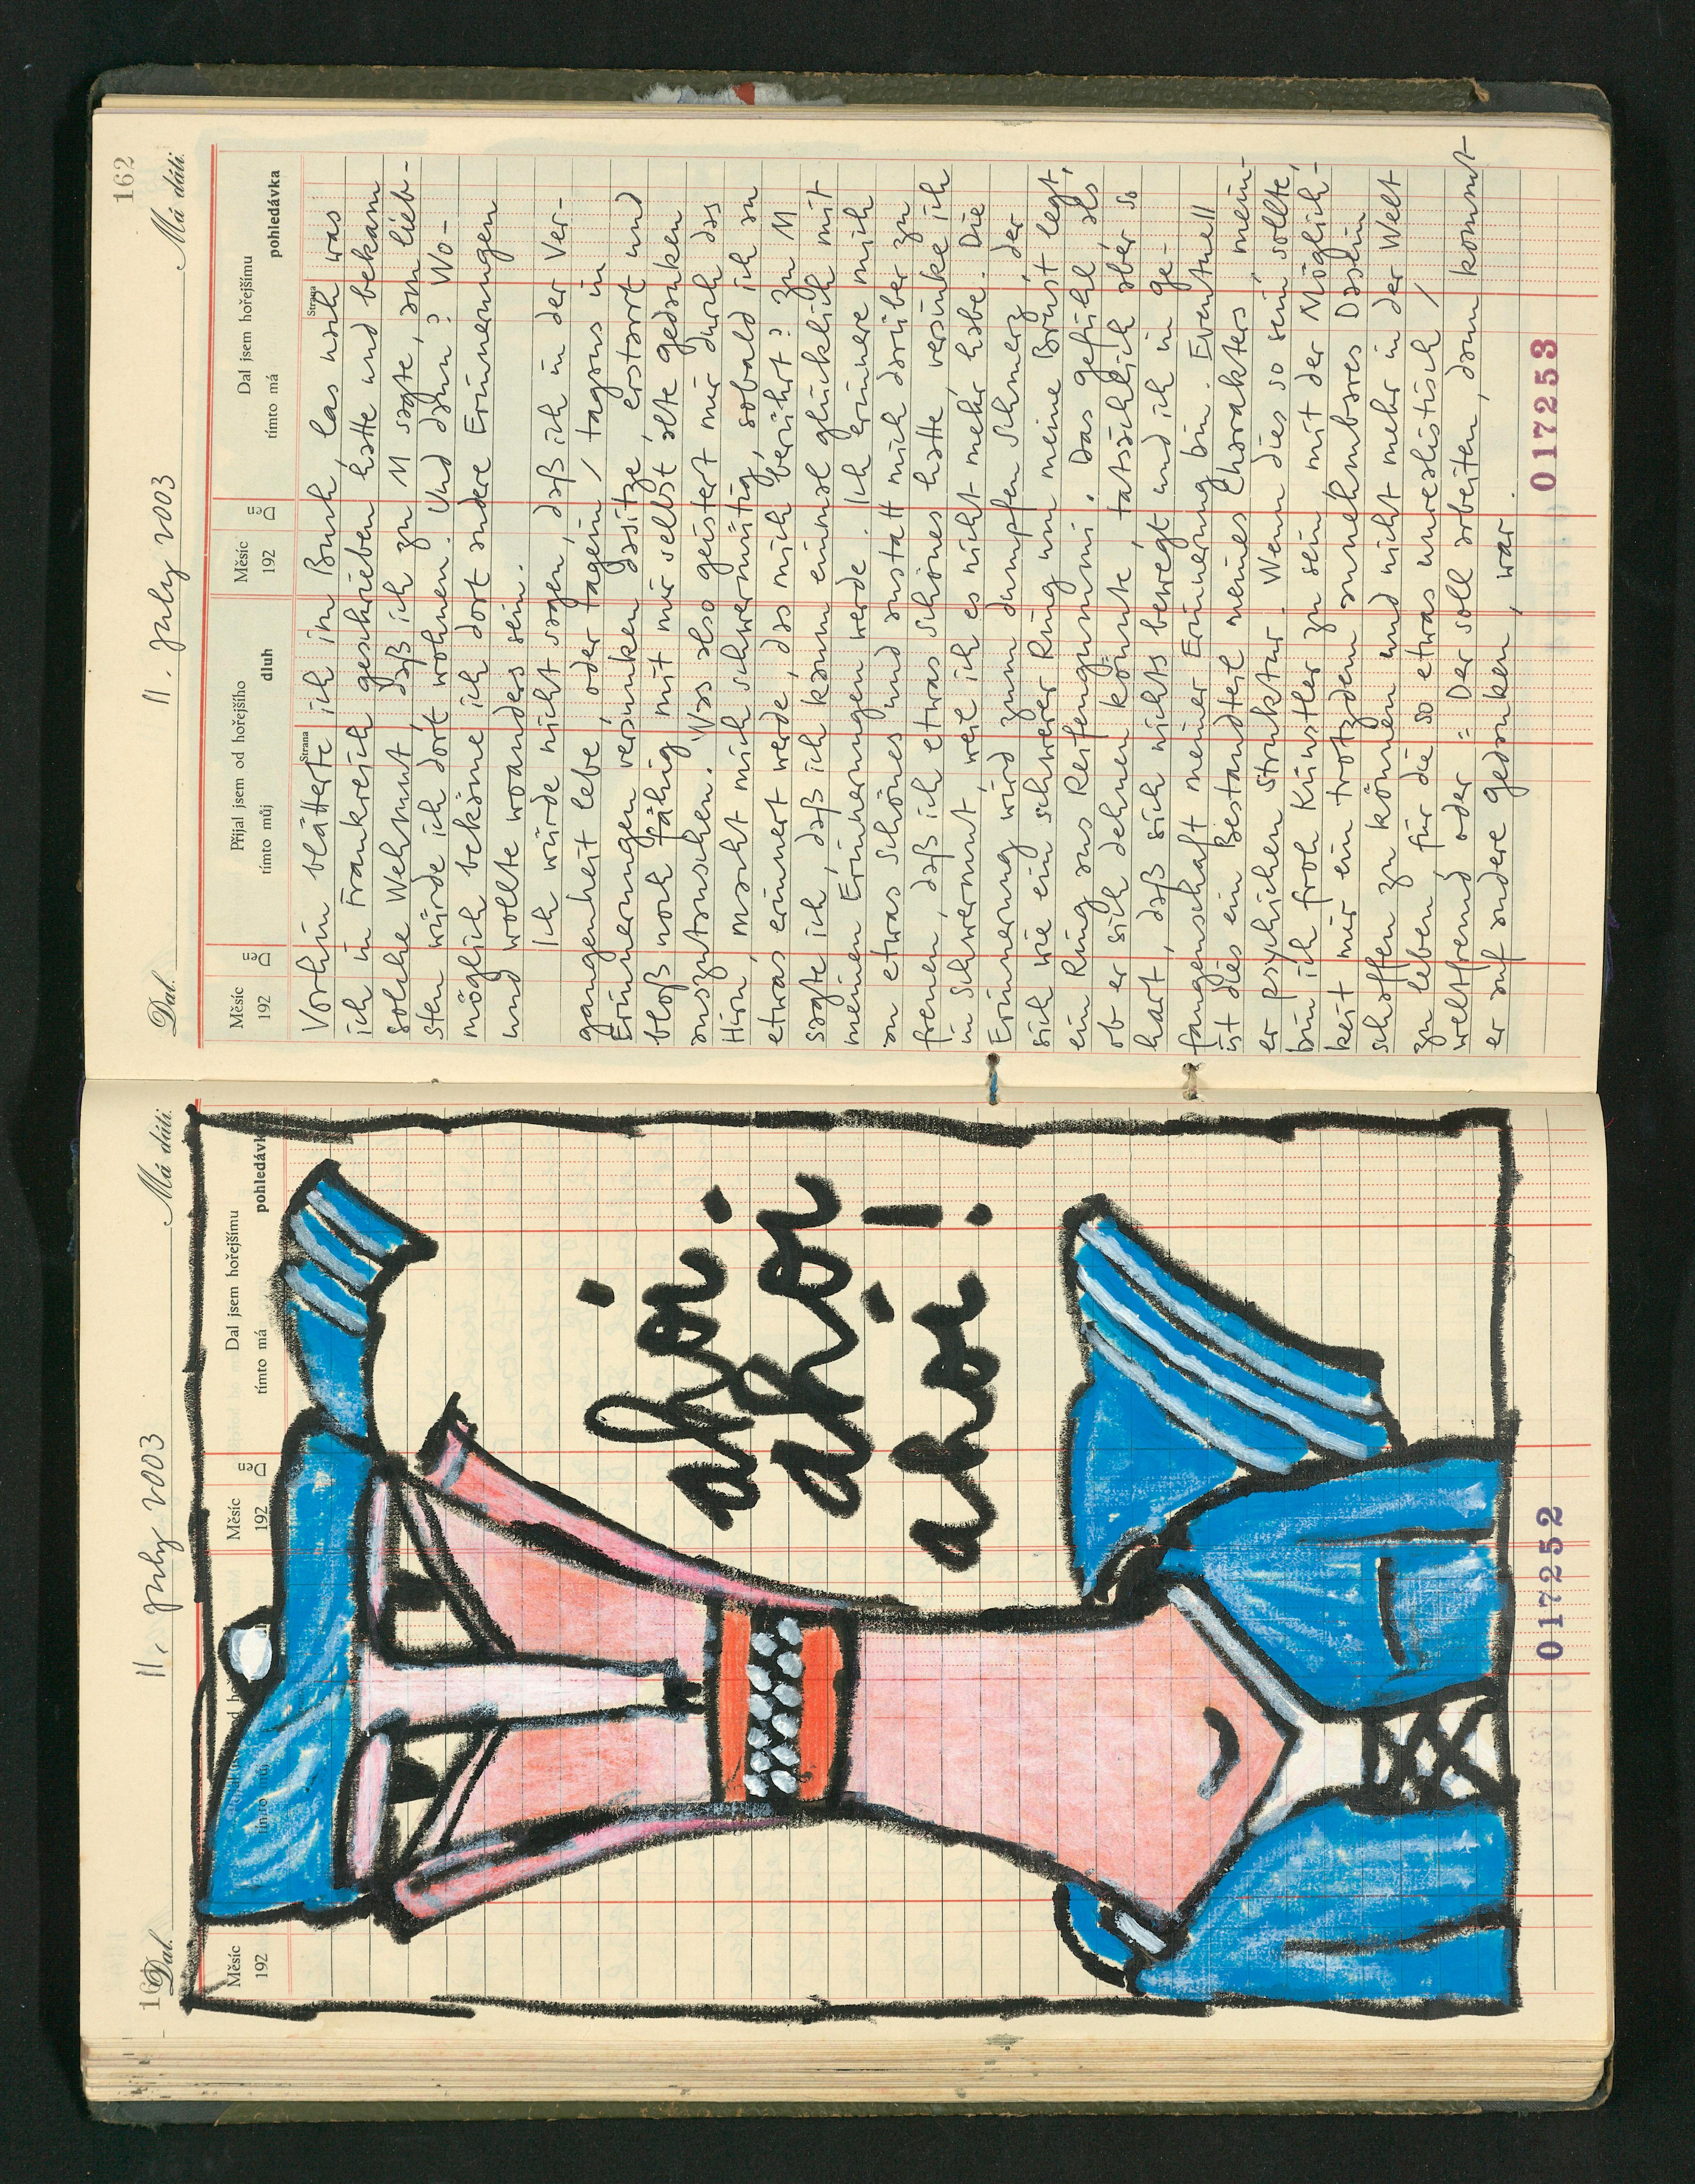 11. July 2003
Dal.
Má dáti.
Měsíc
192
Den
Přijal jsem od hořejšího
tímto můj
dluh
Měsíc
192
Den
Dal jsem hořejšímu
tímto má
pohledávka
ahoi
ahoi
ahoi!
017252
162
11. July 2003
Dal.
Má dáti.
Měsíc
192
Den
Přijal jsem od hořejšího
tímto můj
dluh
Strana
Měsíc
192
Den
Dal jsem hořejšímu
tímto má
pohledávka
Strana
Vorhin blätterte ich im Buch, las nach was
ich in Frankreich geschrieben hatte und bekam
solche Wehmut, daß ich zu M sagte, am lieb-
sten würde ich dort wohnen. Und dann? Wo-
möglich bekäme ich dort andere Erinnerungen
und wollte woanders sein.
Ich würde nicht sagen, daß ich in der Ver-
gangenheit lebe, oder tagein / tagaus in
Erinnerungen versunken dasitze, erstarrt und
bloß noch fähig mit mir selbst alte gedanken
auszutauschen. Was also geistert mir durch das
Hirn, macht mich schwermütig, sobald ich an
etwas erinnert werde, das mich berührt? Zu M
sagte ich, daß ich kaum einmal glücklich mit
meinen Erinnerungen werde. Ich erinnere mich
an etwas schönes und anstatt mich darüber zu
freuen, daß ich etwas schönes hatte, versinke ich
in Schwermut, weil ich es nicht mehr habe. Die
Erinnerung wird zum dumpfen Schmerz, der
sich wie ein schwerer Ring um meine Brust legt,
ein Ring aus Reifengummi. Das gefühl, als
ob er sich dehnen könnte, tatsächlich aber so
hart, daß sich nichts bewegt und ich in ge-
fangenschaft meiner Erinnerung bin. Eventuell
ist dies ein Bestandteil meines Charakters, mein-
er psychichen Struktur. Wenn dies so sein sollte,
bin ich froh Künstler zu sein, mit der Möglich-
keit mir ein trotzdem annehmbares Dasein
schaffen zu können und nicht mehr in der Welt
zu leben, für die so etwas unrealistisch /
weltfremd, oder: Der soll arbeiten, dann kommt
er auf andere gedanken, war.
017253